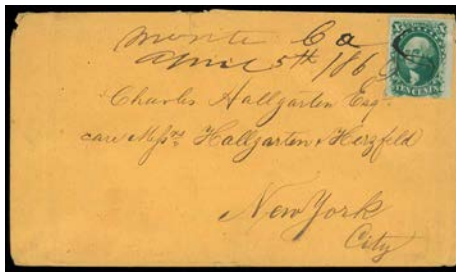 Monte Ca
April 5th 186
Charles Hallgarten Esq.
care Messrs Hallgarten & Herzfeld
New York
City
TEN CENTS